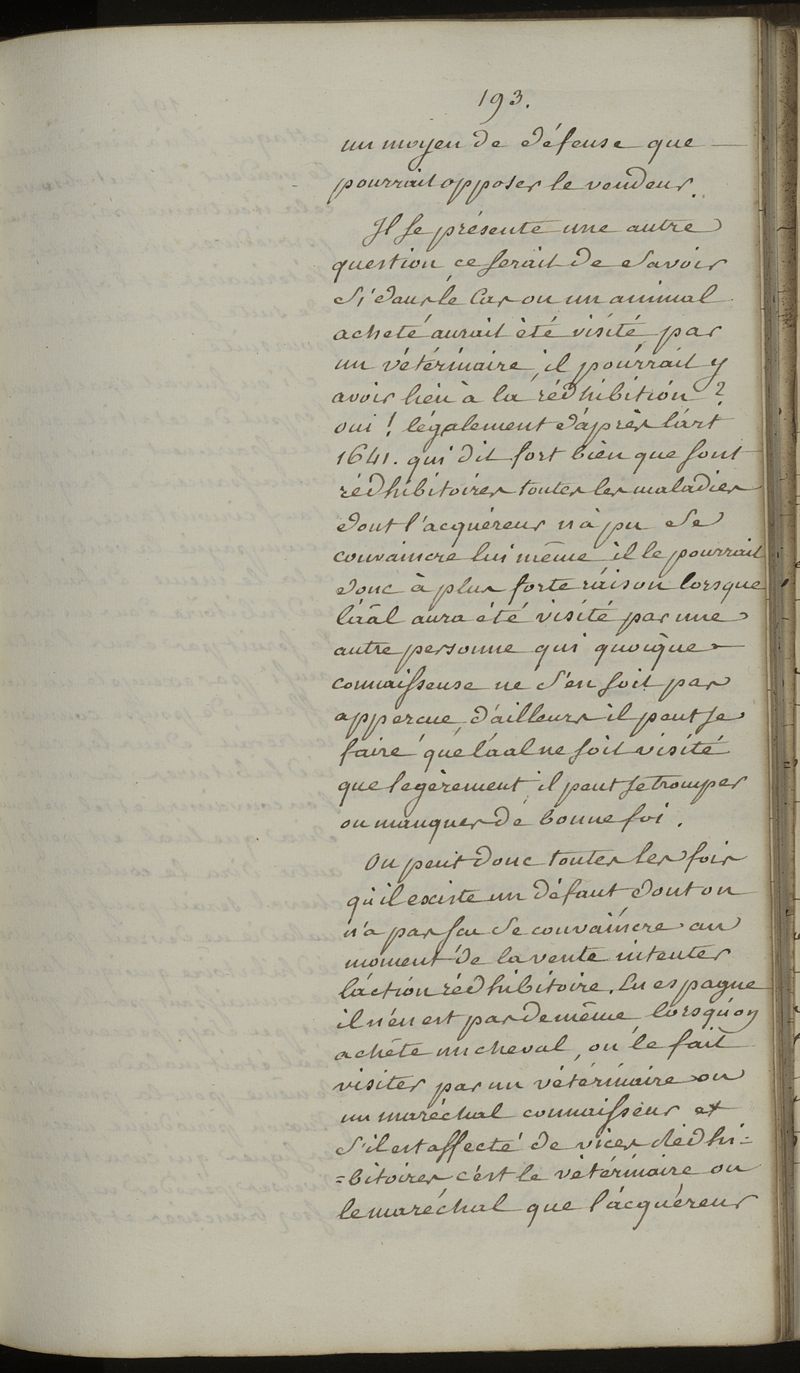 193.
un moyen de défense que
pourrait opposer le vendeur.
Il se présente une autre
question ce serait de savoir
si dans le cas ou un animal
acheté aurait été visité par
un vétérinaire, il pourrait y
avoir lieu à la rédhibition ?
oui ! légalement d'après l'art
1641. qui dit fort bien que sont
rédhibitoires toutes les maladies
dont l'acquéreur n'à pu se
convaincre lui même il le pourrait
donc à plus forte raison lorsque
l'aâl aura été visité par une
autre personne qui quoique
connaisseuse ne s'en soit pas
appercue d'ailleurs il peut se
faire que l'aal ne soit visité
que legèrement, il peut se tromper
ou manquer de bonne foi.
On peut donc toutes les fois
qu'il existe un défaut dont on
n'a pas su se convaincre au
moment de la vente intenter
l'action rédhibitoire. En espagne
il n'en est pas de même, lorsqu'on
achète un cheval, on le fait
visiter par un vétérinaire ou
un maréchal connaisseur et
s'il est affecté de vices rédhi=
=bitoires c'est le vétérinaire ou
le maréchal que l'acquéreur